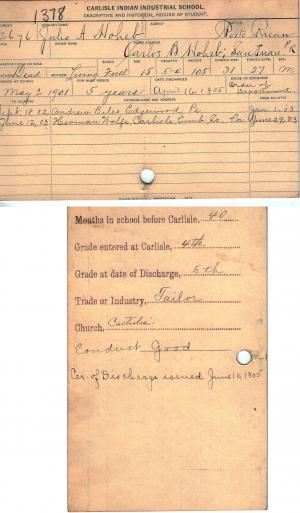 1378
CARLISLE INDIAN INDUSTRIAL SCHOOL.
DESCRIPTIVE AND HISTORICAL RECORD OF STUDENT.
2676 Julio A Hoheb Porto Rican
Carlos B Hoheb, San Juan, P.R.
Dead Living Full 15 5-4 105 31 27 M.
May 2 1901 5 years April 16, 1905 Order of Department
Sept. 18 02 Andrew Bales Edgewood, Pa Jan. 1, 03
June 12, 03 Herman Wolfe, Carlisle, Cumb. Co. Pa June 29, 03
Months in school before Carlisle, 40
Grade entered at Carlisle, 4th
Grade at date of Discharge, 5th
Trade or Industry, Tailor
Church, Catholic
Conduct Good
Cer. of Discharge issued June 16, 1905